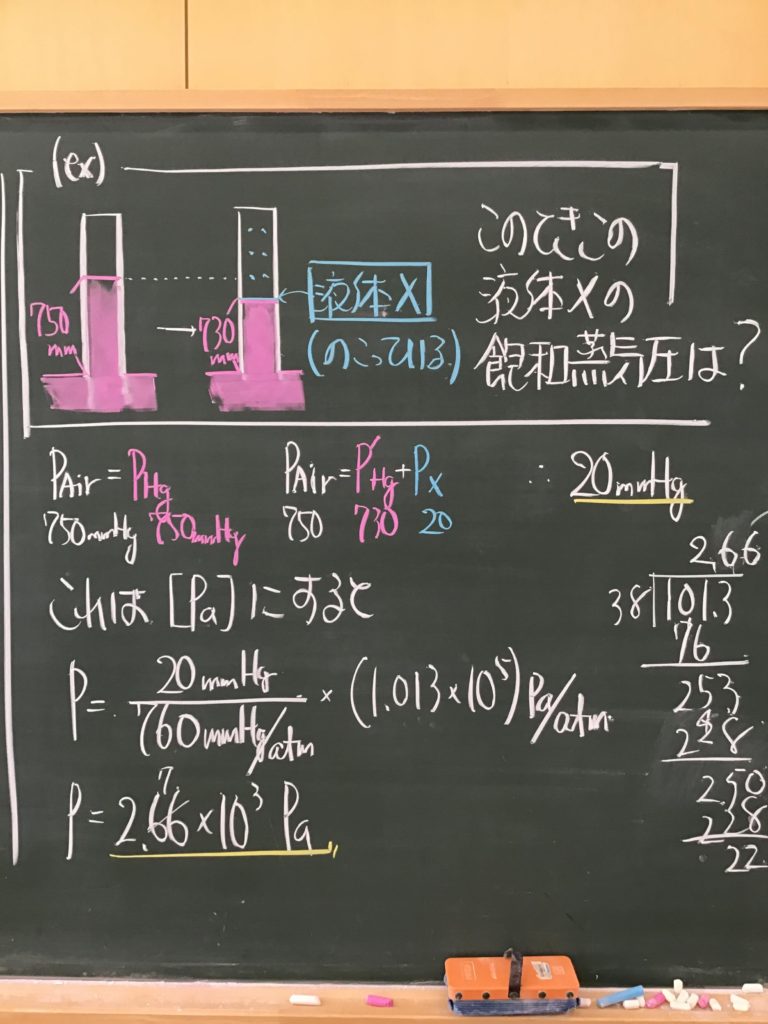 (ex)
750
mm
→
730
mm
液体X
(のこっている)
このときの
液体Xの
飽和蒸気圧は?
PAir = PHg
750mmHg 750mmHg
PAir = P'Hg + Px
750 730 20
∴ 20mmHg
これは [Pa] にすると
P = 20mmHg / 760mmHg/atm × (1.013×10⁵) Pa/atm
7
P = 2.66×10³ Pa
2.66
38 101.3
76
253
228
250
228
22